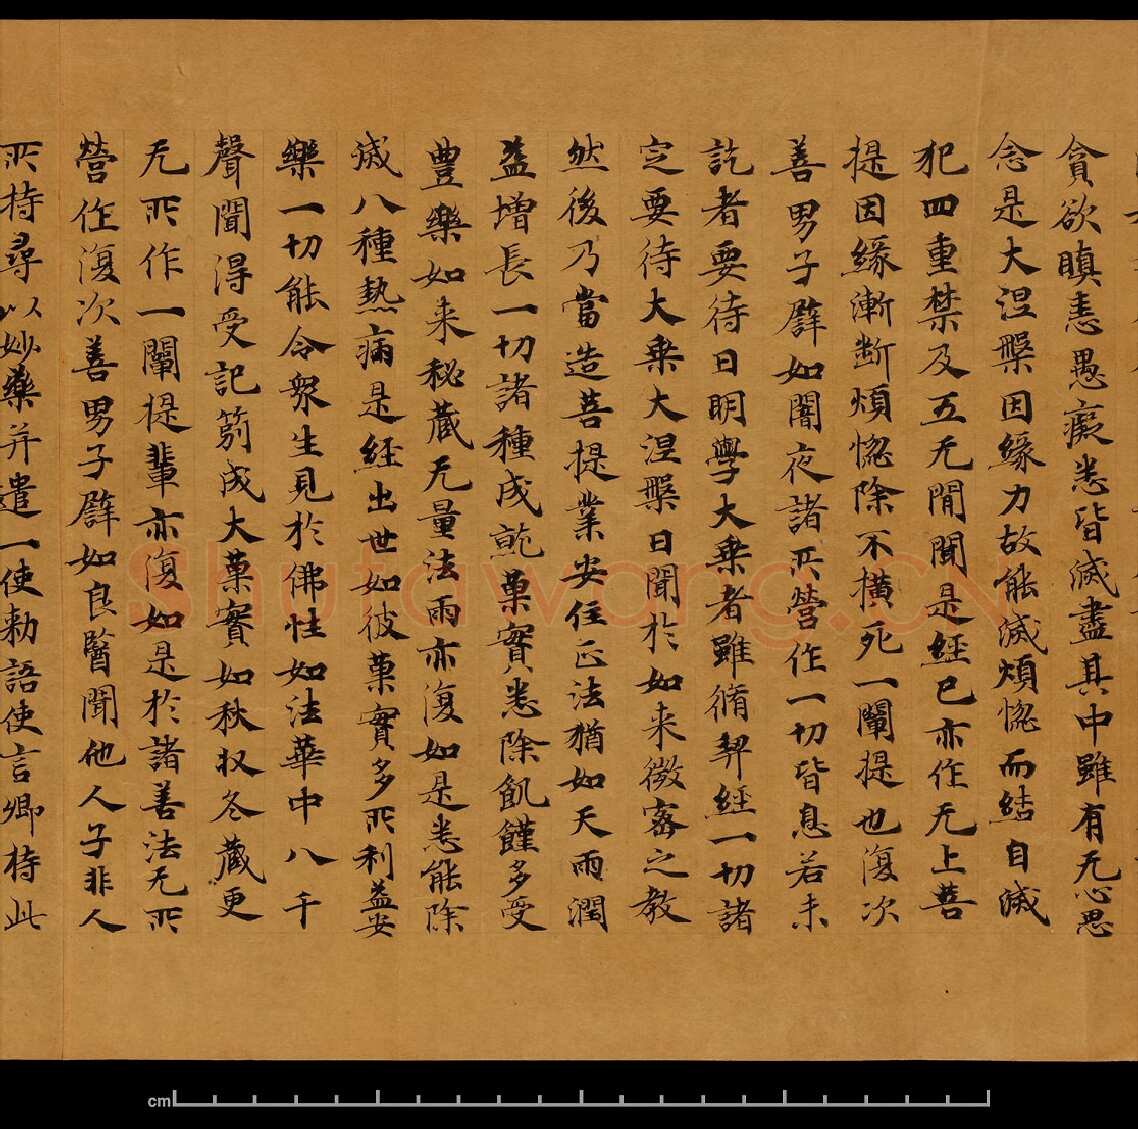 貪欲瞋恚愚癡悉皆滅盡其中雖有无心思
念是大涅槃因緣力故能滅煩惱而結自滅
犯四重禁及五无間聞是經已亦作无上菩
提因緣漸斷煩惱除不橫死一闡提也復次
善男子譬如闇夜諸所營作一切皆息若未
訖者要待日明學大乘者雖脩契經一切諸
定要待大乘大涅槃日聞於如来微密之教
然後乃當造菩提業安住正法猶如天雨潤
益增長一切諸種成就菓實悉除飢饉多受
豊樂如来秘蔵无量法雨亦復如是悉能除
滅八種熱病是經出世如彼菓實多所利益安
樂一切能令衆生見於佛性如法華中八千
聲聞得受記莂成大菓實如秋収冬蔵更
无所作一闡提輩亦復如是於諸善法无所
營作復次善男子譬如良醫聞他人子非人
所持尋以妙藥并遣一使勅語使言卿持此
Shufawang.CN
cm